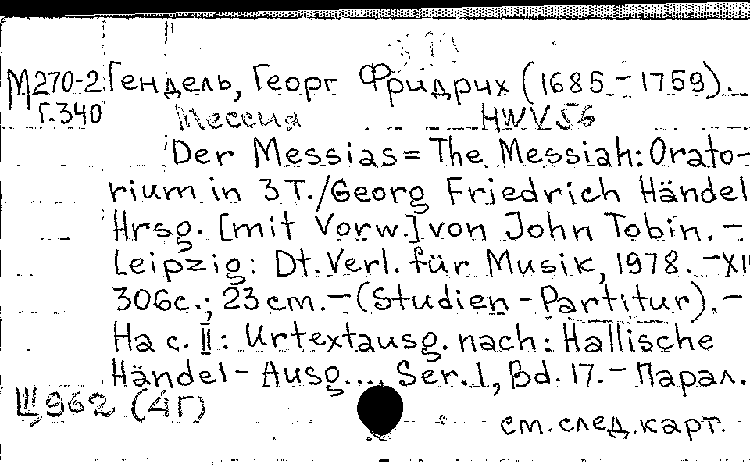 М270-2 Гендель, Георг Фридрих (1685-1759).
Г.340 Мессия HWV 56
Der Messias = The Messiah: Orato-
rium in 3 T./Georg Friedrich Händel
Hrsg. [mit Vorw.] von John Tobin. -
Leipzig: Dt. Verl. für Musik, 1978. - XII
306 с.; 23 cm. - (Studien-Partitur). -
На с. II: Urtextausg. nach: Hallische
Händel-Ausg..., Ser. 1, Bd. 17. - Парал.
Щ962 (4Г)
см. след. карт.